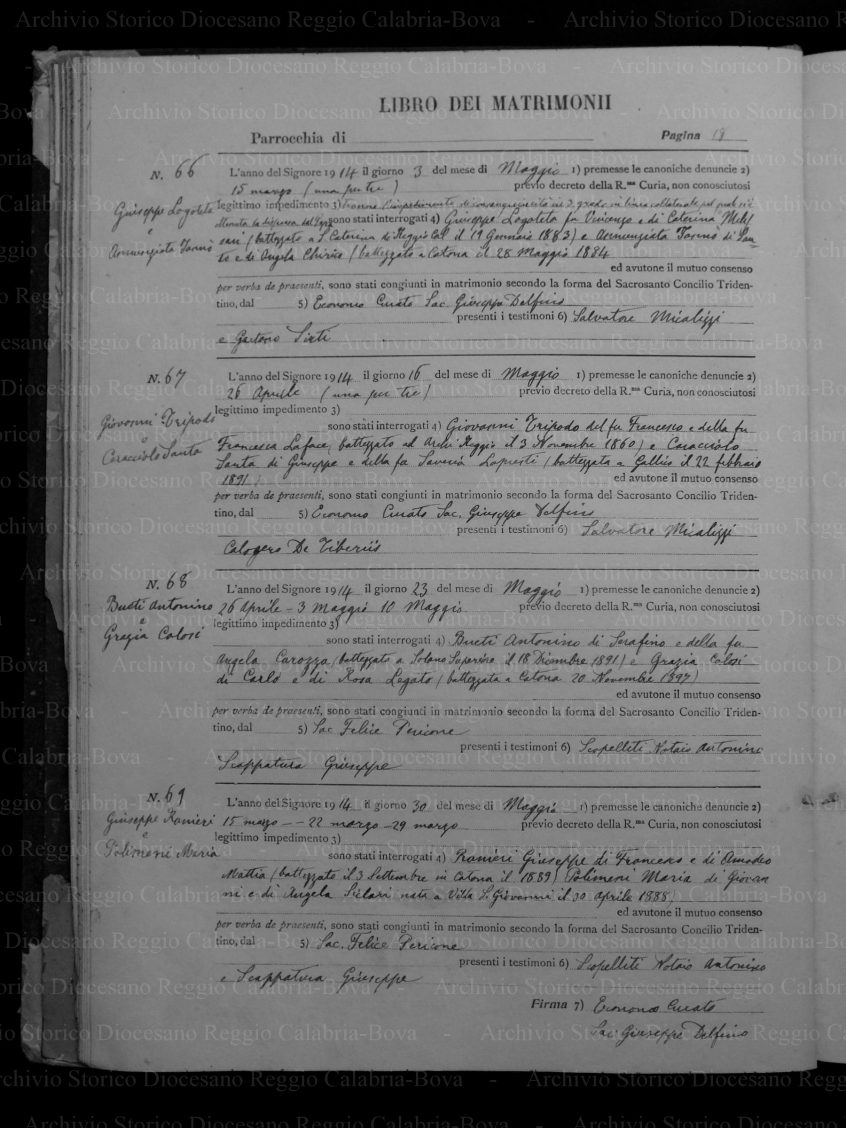 LIBRO DEI MATRIMONII
Parrocchia di Pagina 19
N. 66
Giuseppe Logoteta
e
Annunziata Tornù
L'anno del Signore 1914 il giorno 3 del mese di Maggio 1) premesse le canoniche denuncie 2)
15 marzo (una per tre) previo decreto della R.ma Curia, non conosciutosi
legittimo impedimento 3) tranne l'impedimento di consanguineità in 3 grado in linea collaterale pel quale si è
ottenuta la dispensa dal Papa sono stati interrogati 4) Giuseppe Logoteta fu Vincenzo e di Caterina
(battezzato a S. Caterina di Reggio Cal il 19 Gennaio 1883) e Annunziata di San-
to e di Angela (battezzato a Catona il 28 Maggio 1884
ed avutone il mutuo consenso
per verba de praesenti, sono stati congiunti in matrimonio secondo la forma del Sacrosanto Concilio Triden-
tino, dal 5) Economo Curato Sac Giuseppe Delfino
presenti i testimoni 6) Salvatore Micalizzi
e Gaetano Sirti
N. 67
Giovanni Tripodo
e
Caracciolo Santa
L'anno del Signore 1914 il giorno 16 del mese di Maggio 1) premesse le canoniche denuncie 2)
26 Aprile (una per tre) previo decreto della R.ma Curia, non conosciutosi
legittimo impedimento 3)
sono stati interrogati 4) Giovanni Tripodo del fu Francesco e della fu
Francesca Laface (battezzato ad Archi Reggio il 3 Novembre 1860) e Caracciolo
Santa di Giuseppe e della fu Saveria Lopresti (battezzata a Gallico il 22 febbraio
1891) ed avutone il mutuo consenso
per verba de praesenti, sono stati congiunti in matrimonio secondo la forma del Sacrosanto Concilio Triden-
tino, dal 5) Economo Curato Sac. Giuseppe Delfino
presenti i testimoni 6) Salvatore Micalizzi
Calogero De Tiberiis
N. 68
Bueti Antonino
e
Grazia Calosi
L'anno del Signore 1914 il giorno 23 del mese di Maggio 1) premesse le canoniche denuncie 2)
26 Aprile - 3 Maggio 10 Maggio previo decreto della R.ma Curia, non conosciutosi
legittimo impedimento 3)
sono stati interrogati 4) Bueti Antonino di Serafino e della fu
Angela Carozza (battezzato a Solano Superiore il 18 Dicembre 1891) e Grazia Calosi
di Carlo e di Rosa Legato (battezzata a Catona 20 Novembre 1897)
ed avutone il mutuo consenso
per verba de praesenti, sono stati congiunti in matrimonio secondo la forma del Sacrosanto Concilio Triden-
tino, dal 5) Sac Felice Pericone
presenti i testimoni 6) Scopelliti Notaio Antonino
Scappatura Giuseppe
N. 69
Giuseppe Ranieri
e
Polimeni Maria
L'anno del Signore 1914 il giorno 30 del mese di Maggio 1) premesse le canoniche denuncie 2)
15 marzo -- 22 marzo - 29 marzo previo decreto della R.ma Curia, non conosciutosi
legittimo impedimento 3)
sono stati interrogati 4) Ranieri Giuseppe di Francesco e di Amodeo
Mattia (battezzato il 3 Settembre in Catona il 1889) Polimeni Maria di Giovan
ni e di Angela Siclari nata a Villa S. Giovanni il 30 Aprile 1888)
ed avutone il mutuo consenso
per verba de praesenti, sono stati congiunti in matrimonio secondo la forma del Sacrosanto Concilio Triden-
tino, dal 5) Sac. Felice Pericone
presenti i testimoni 6) Scopelliti Notaio Antonino
e Scappatura Giuseppe
Firma 7) Economo Curato
Sac. Giuseppe Delfino